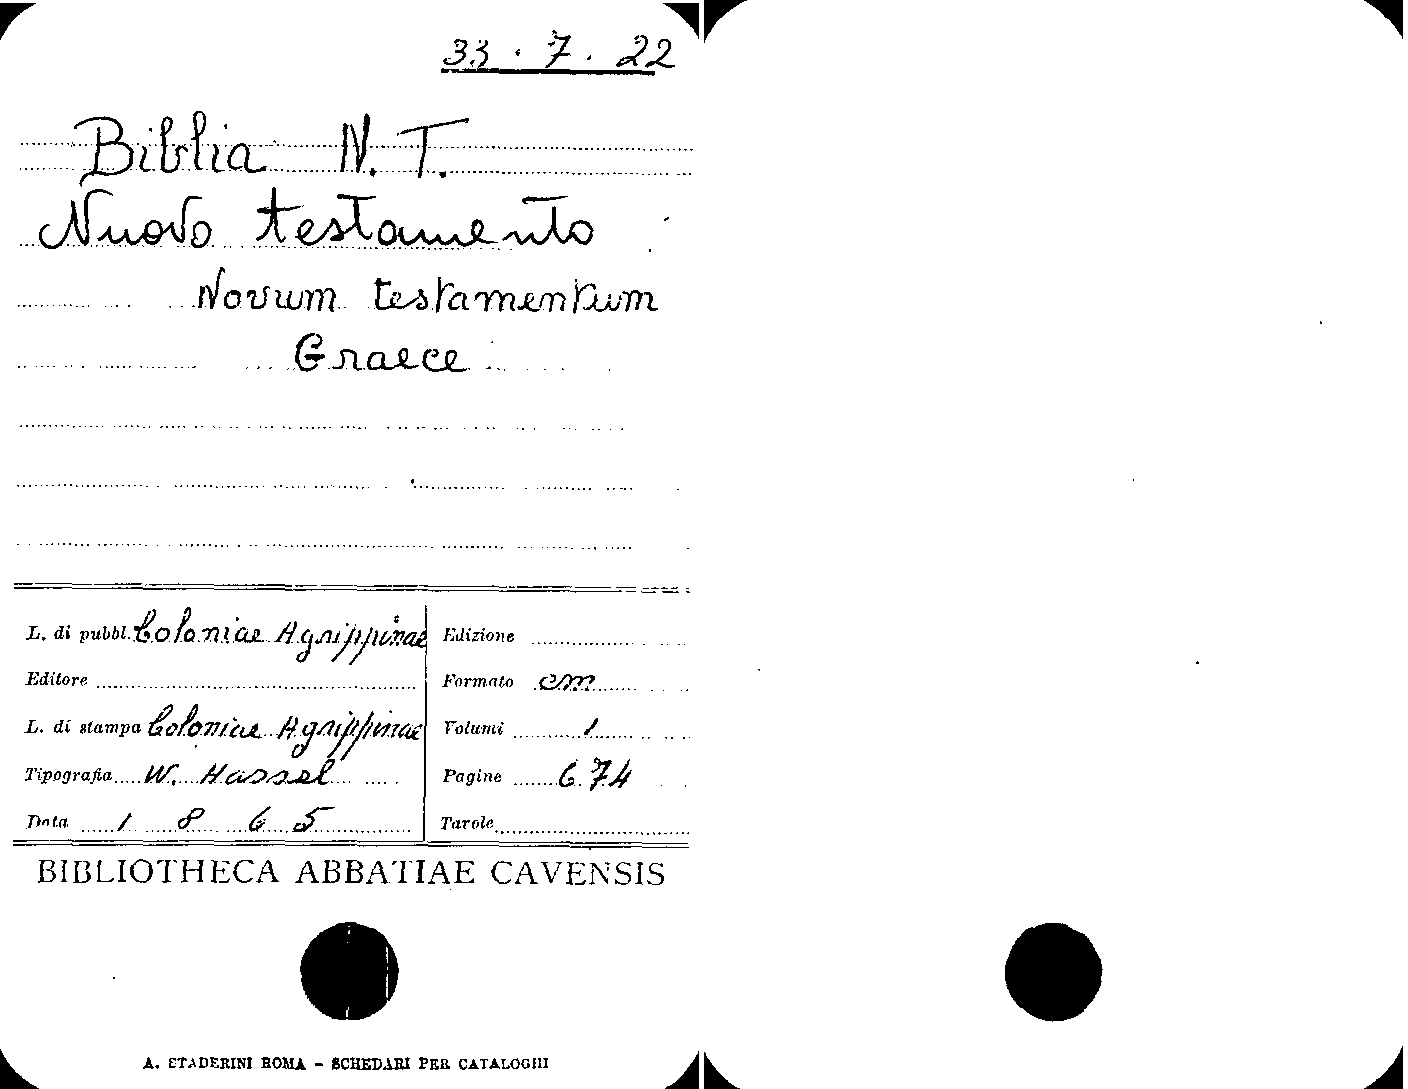 33.7.22
Biblia N.T.
Nuovo testamento
Novum testamentum
Graece
L. di pubbl. Coloniae Agrippinae
Edizione
Editore
Formato cm
L. di stampa Coloniae Agrippinae
Volumi 1
Tipografia W. Hassel
Pagine 674
Data 1865
Tavole
BIBLIOTHECA ABBATIAE CAVENSIS
A. STADERINI ROMA - SCHEDARI PER CATALOGHI